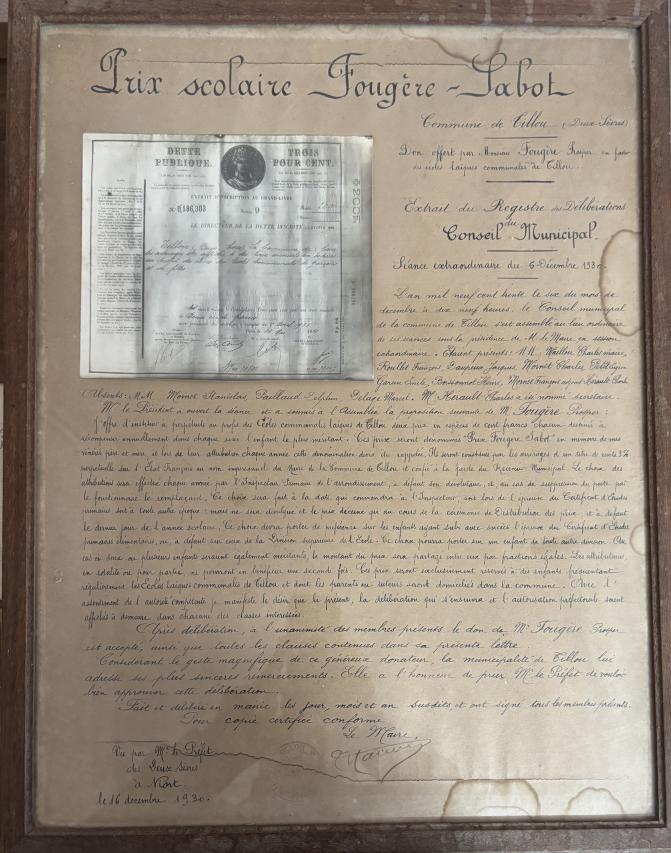 Prix scolaire Fougère-Sabot
Commune de Tillou (Deux-Sèvres)
Don offert par Monsieur Fougère Prosper en faveur
des écoles laïques communales de Tillou.
DETTE PUBLIQUE.
TROIS POUR CENT.
EXTRAIT D'INSCRIPTION AU GRAND-LIVRE
LE DIRECTEUR DE LA DETTE INSCRITE
Extrait du Registre des Délibérations
du
Conseil Municipal.
Séance extraordinaire du 6 Décembre 1930
L'an mil neuf cent trente le six du mois de
décembre à dix neuf heures, le Conseil municipal
de la commune de Tillou s'est assemblé au lieu ordinaire
de ses séances sous la présidence de M. le Maire, en session
extraordinaire. Étaient présents: M.M.
Roullet François, Dauprieux Jacques, Mornet Charles,
Mornet François
Absents: M.M. Mornet Stanislas, Paillaud Delphin, Marcel. Mr Hérault Charles a été nommé secrétaire.
Mr le Président a ouvert la séance et a soumis à l'Assemblée la proposition suivante de M. Fougère Prosper:
"j'offre d'instituer à perpétuité au profit des Écoles communales laïques de Tillou deux prix en espèces de cent francs chacun destinés à
récompenser annuellement dans chaque école l'enfant le plus méritant. Ces prix seront dénommés "Prix Fougère Sabot" en mémoire de mes
vénérés père et mère et lors de leur attribution chaque année cette dénomination devra être rappelée. Ils seront constitués par les arrérages d'un titre de rente 3%
perpétuelle sur l'État Français au nom impersonnel du Maire de la Commune de Tillou et confié à la garde du Receveur Municipal. Le choix des
attributions sera effectué chaque année par l'Inspecteur Primaire de l'arrondissement, à défaut son dévolutaire, et, au cas de suppression du poste par
le fonctionnaire le remplaçant. Ce choix sera fait à la date qui conviendra à l'Inspecteur, soit lors de l'épreuve du Certificat d'Études
primaires soit à toute autre époque: mais ne sera divulgué et le prix décerné qu'au cours de la cérémonie de Distribution des prix et à défaut
le dernier jour de l'année scolaire. Ce choix devra porter de préférence sur les enfants ayant subi avec succès l'épreuve du Certificat d'Études
primaires élémentaires ou, à défaut sur ceux de la Division supérieure de l'École. Ce choix pourra porter sur un enfant de toute autre division. Au
cas où deux ou plusieurs enfants seraient également méritants, le montant du prix sera partagé entre eux par fractions égales. Les attributaires,
en totalité ou pour partie, ne pourront en bénéficier une seconde fois. Ces prix seront exclusivement réservés à des enfants fréquentant
régulièrement les Écoles laïques communales de Tillou et dont les parents ou tuteurs seront domiciliés dans la commune. Avec l'
assentiment de l'autorité compétente je manifeste le désir que la présente, la délibération qui s'ensuivra et l'autorisation préfectorale soient
affichés à demeure dans chacune des classes intéressées.
Après délibération, à l'unanimité des membres présents le don de Mr Fougère Prosper
est accepté, ainsi que toutes les clauses contenues dans sa présente lettre.
Considérant le geste magnifique de ce généreux donateur, la municipalité de Tillou lui
adresse ses plus sincères remerciements. Elle a l'honneur de prier Mr le Préfet de vouloir
bien approuver cette délibération.
Fait et délibéré en mairie les jour, mois et an susdits, et ont signé tous les membres présents.
Pour copie certifiée conforme
Le Maire,
Vu par Mr le Préfet
des Deux-Sèvres
à Niort.
le 16 décembre 1930.